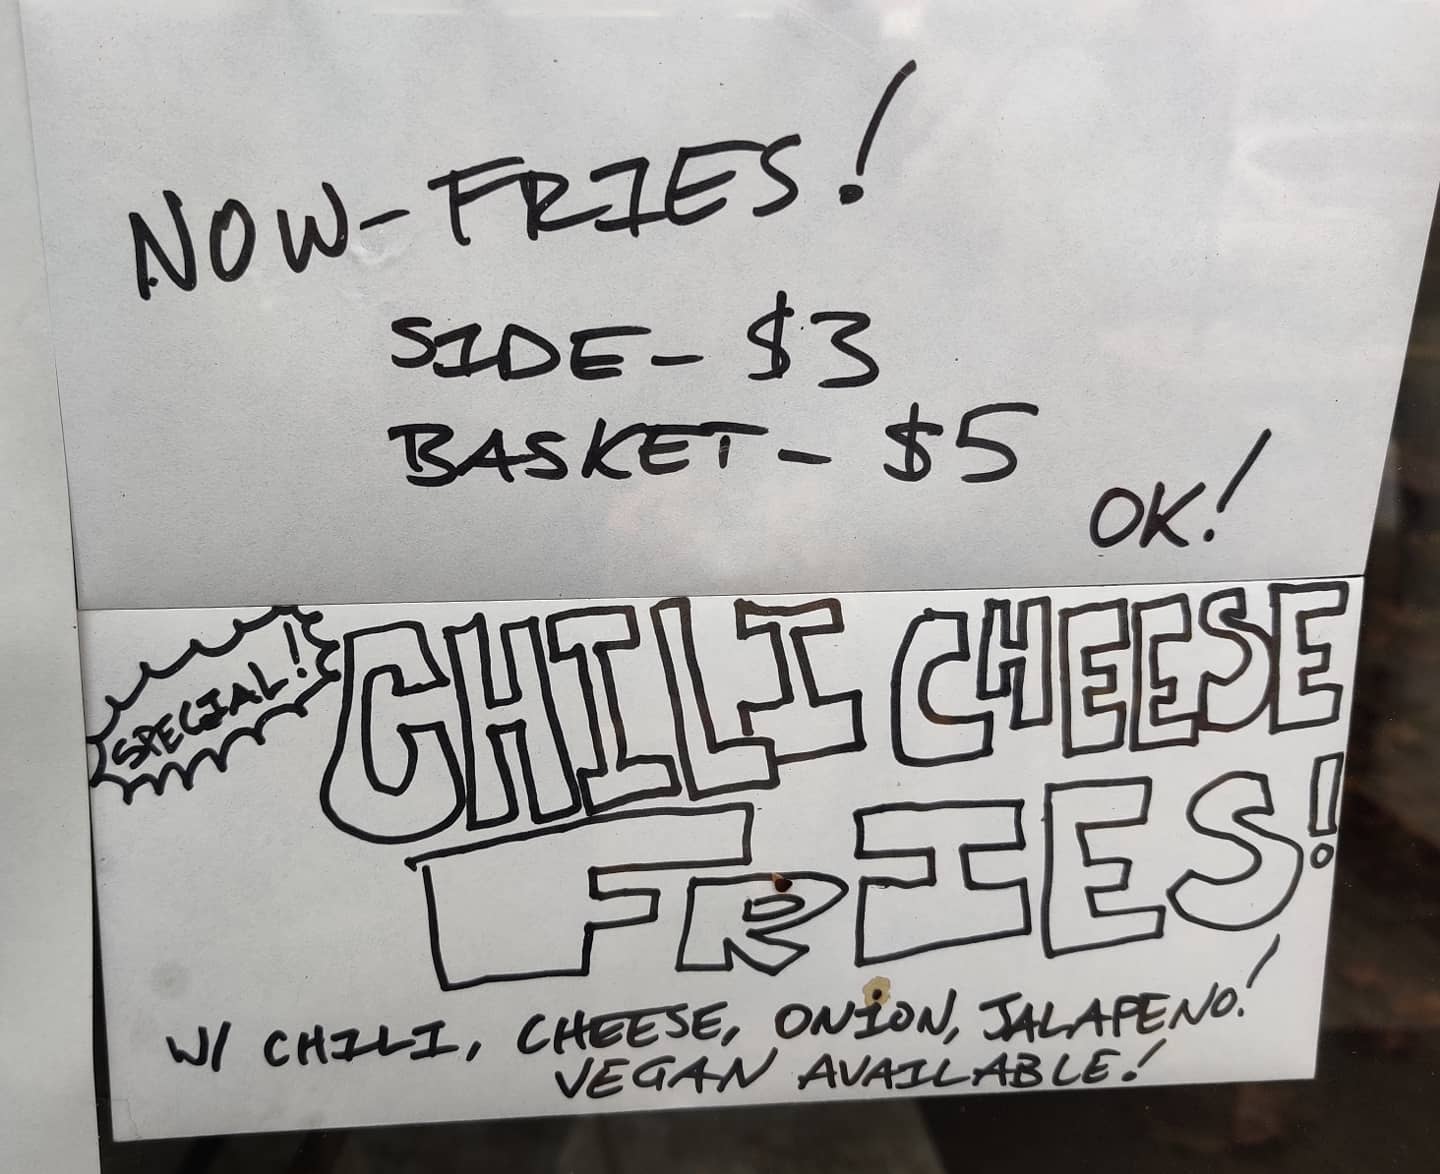 NOW-FRIES!
SIDE- $3
BASKET- $5
OK!
SPECIAL!
CHILI CHEESE
FRIES!
W/ CHILI, CHEESE, ONION, JALAPENO!
VEGAN AVAILABLE!